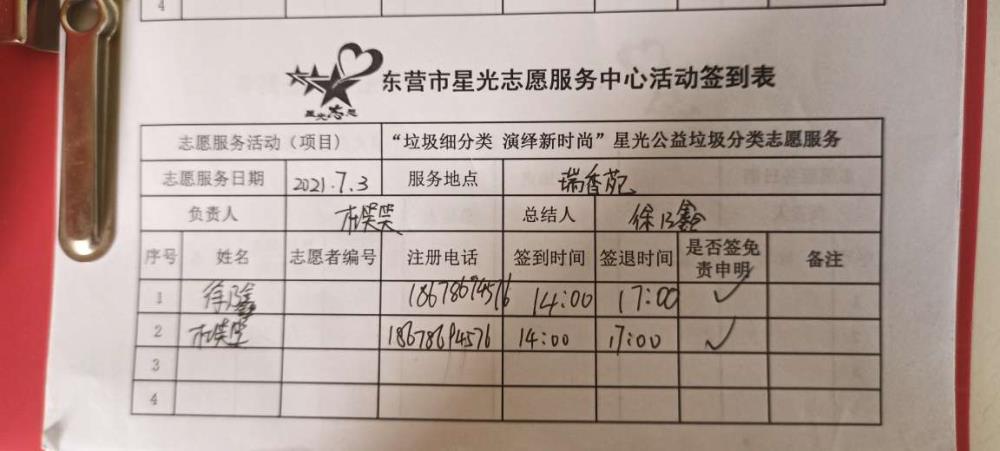 4
星光志愿
东营市星光志愿服务中心活动签到表
志愿服务活动（项目） “垃圾细分类 演绎新时尚”星光公益垃圾分类志愿服务
志愿服务日期 2021.7.3 服务地点 瑞香苑
负责人 总结人 徐乃鑫
序号 姓名 志愿者编号 注册电话 签到时间 签退时间 是否签免责申明 备注
1 徐乃鑫 18678694576 14:00 17:00 ✓
2 18678694576 14:00 17:00 ✓
3
4